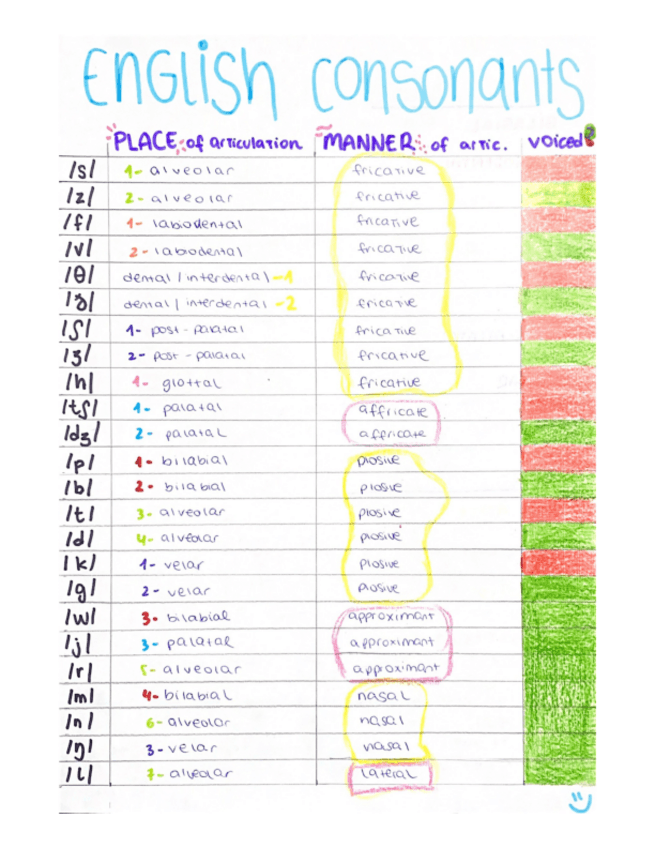 ENGLISH CONSONANTS
PLACE of articulation MANNER of artic. voiced?
/s/ 1- alveolar fricative
/z/ 2- alveolar fricative
/f/ 1- labiodental fricative
/v/ 2- labiodental fricative
/θ/ dental / interdental -1 fricative
/ð/ dental / interdental -2 fricative
/ʃ/ 1- post-palatal fricative
/ʒ/ 2- post-palatal fricative
/h/ 1- glottal fricative
/tʃ/ 1- palatal affricate
/dʒ/ 2- palatal affricate
/p/ 1- bilabial plosive
/b/ 2- bilabial plosive
/t/ 3- alveolar plosive
/d/ 4- alveolar plosive
/k/ 1- velar plosive
/g/ 2- velar plosive
/w/ 3- bilabial approximant
/j/ 3- palatal approximant
/r/ 5- alveolar approximant
/m/ 4- bilabial nasal
/n/ 6- alveolar nasal
/ŋ/ 3- velar nasal
/l/ 7- alveolar lateral